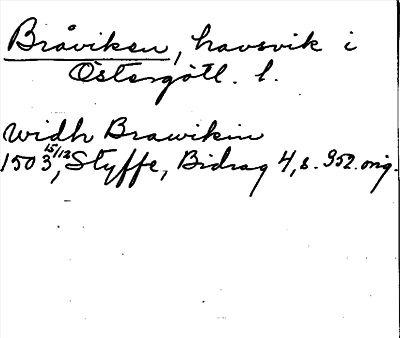 Bråviken, havsvik i
Östergötl. l.
widh Brawikin
1503 15/12, Styffe, Bidrag 4, s. 352. orig.